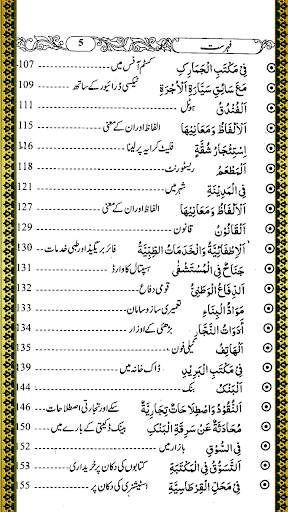 فہرست 5
فِيْ مَكْتَبِ الْجَمَارِكِ کسٹم آفس میں 107
مَعَ سَائِقِ سَيَّارَةِ الْاُجْرَةِ ٹیکسی ڈرائیور کے ساتھ 109
اَلْفُنْدُقُ ہوٹل 111
اَلْاَلْفَاظُ وَمَعَانِيْهَا الفاظ اور ان کے معنی 115
اِسْتِئْجَارُ شُقَّةٍ فلیٹ کرایہ پر لینا 116
اَلْمَطْعَمُ ریسٹورنٹ 118
فِي الْمَدِيْنَةِ شہر میں 121
اَلْاَلْفَاظُ وَمَعَانِيْهَا الفاظ اور ان کے معنی 127
اَلْقَانُوْنُ قانون 129
اَلْاِطْفَائِيَّةُ وَالْخَدَمَاتُ الطِّبِّيَّةُ فائر بریگیڈ اور طبی خدمات 130
جَنَاحٌ فِي الْمُسْتَشْفٰى ہسپتال کا وارڈ 131
اَلدِّفَاعُ الْوَطَنِيُّ قومی دفاع 132
مَوَادُّ الْبِنَاءِ تعمیری ساز و سامان 133
اَدَوَاتُ النَّجَّارِ بڑھئی کے اوزار 134
اَلْهَاتِفُ ٹیلی فون 135
فِيْ مَكْتَبِ الْبَرِيْدِ ڈاک خانہ میں 139
اَلْبَنْكُ بنک 144
اَلنُّقُوْدُ وَاصْطِلَاحَاتٌ تِجَارِيَّةٌ سکے اور تجارتی اصطلاحات 146
مُحَادَثَةٌ عَنْ سَرِقَةِ الْبَنْكِ بینک ڈکیتی کے بارے میں 150
فِي السُّوْقِ بازار میں 152
اَلتَّسَوُّقُ فِي الْمَكْتَبَةِ کتابوں کی دکان پر خریداری 153
فِيْ مَحَلِّ الْقِرْطَاسِيَّةِ اسٹیشنری کی دکان پر 155